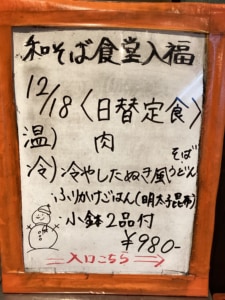 和そば食堂入福
12/18〈日替定食〉
温) 肉
冷) 冷やしたぬき風 そば うどん
ふりかけごはん(明太子昆布)
小鉢2品付
¥980-
入口こちら